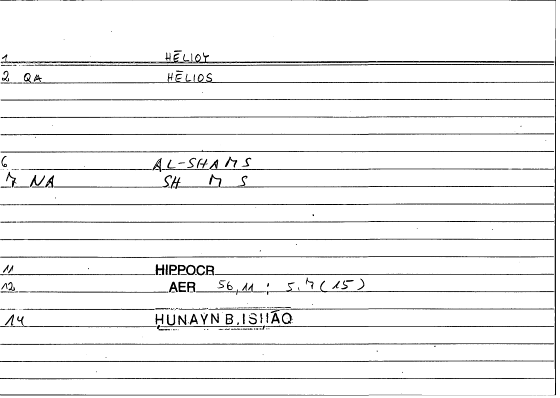 1 HĒLIOY
2 QA HĒLIOS
6 AL-SHAMS
7 NA SH M S
11 HIPPOCR
12 AER 56,11 ; 5.7 (15)
14 HUNAYN B.ISḤĀQ